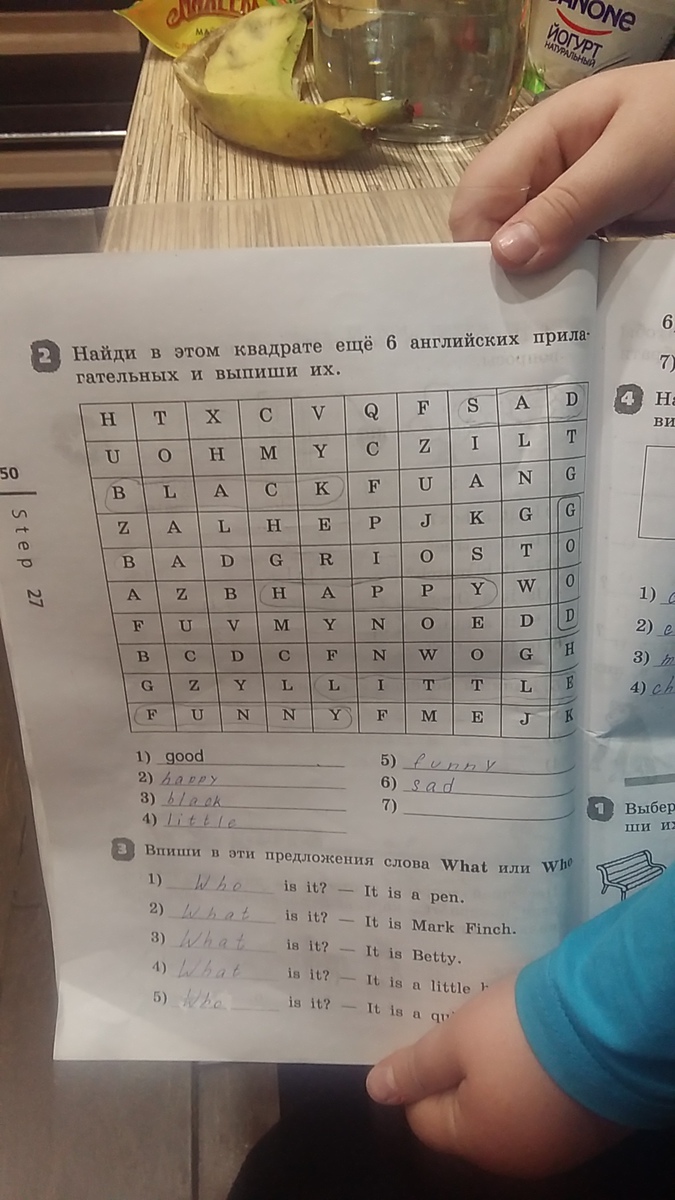 DANONE
ЙОГУРТ
НАТУРАЛЬНЫЙ
2 Найди в этом квадрате ещё 6 английских прила-
гательных и выпиши их.
H T X C V Q F S A D
U O H M Y C Z I L T
B L A C K F U A N G
Z A L H E P J K G G
B A D G R I O S T O
A Z B H A P P Y W O
F U V M Y N O E D D
B C D C F N W O G H
G Z Y L L I T T L E
F U N N Y F M E J K
1) good
2) happy
3) black
4) little
5) funny
6) sad
7)
3 Впиши в эти предложения слова What или Who
1) Who is it? — It is a pen.
2) What is it? — It is Mark Finch.
3) What is it? — It is Betty.
4) What is it? — It is a little
5) Who is it? — It is a
50
Step 27
6
7)
4
1)
2)
3)
4)
1 Выбер
ши их